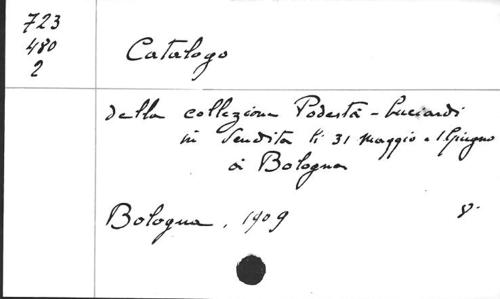 723
480
2
Catalogo
della collezione Podestà - Luciardi
in Vendita li 31 Maggio e 1 Giugno
a Bologna
Bologna, 1909
8.